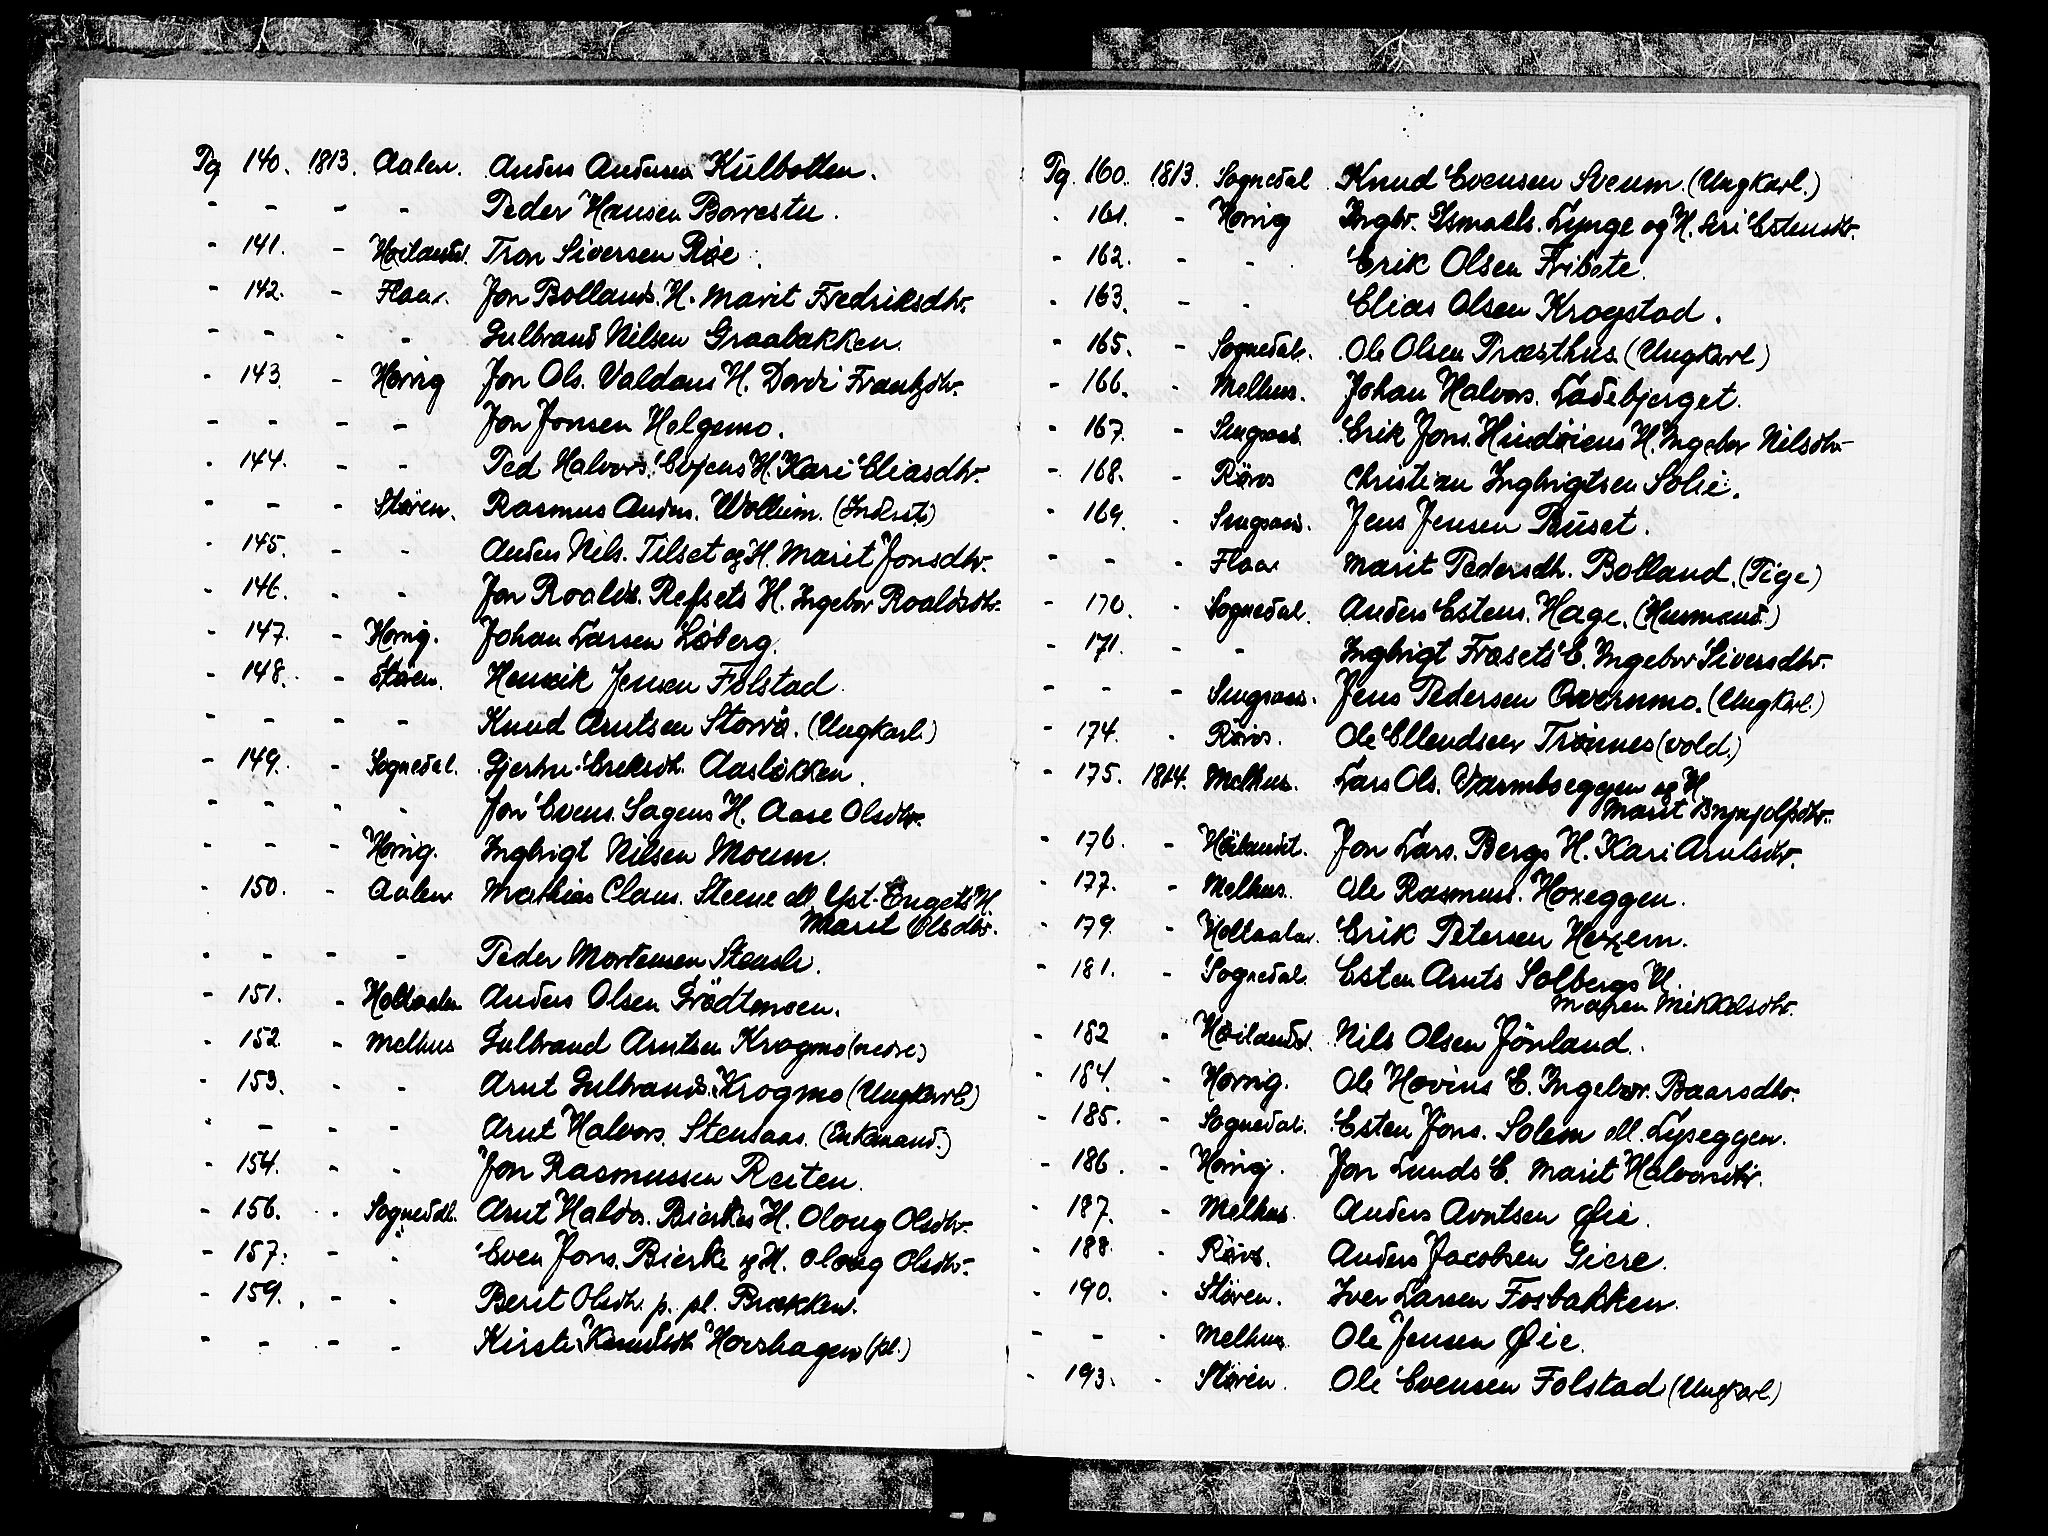 Pg 140. 1813. Aalen. Anders Andersen Kulbotten.
- - - - Peder Hansen Borrestu.
- 141. - Høilandet. Tron Siversen Røe.
- 142. - Flaa. Jon Bollands. H. Marit Fredriksdtr.
- - - - Gulbrand Nilsen Graabakken.
- 143. - Horrig Jon Ols. Valdans H. Dordi Frantzdtr.
- - - - Jon Jonsen Helgemo.
- 144. - - Ped Halvors. Evjens H. Kari Eliasdtr.
- - - Støren. Rasmus Anders. Wollum. (Inderst)
- 145. - - Anders Nils. Tilset og H. Marit Jonsdtr.
- 146. - - Jon Roalds. Refsets H. Ingebor Roaldsdtr.
- 147. - Horrig. Johan Larsen Løberg.
- 148. - Støren. Henrik Jensen Folstad.
- - - - Knud Arntsen Storrø. (Ungkarl.)
- 149. - Sognedal. Gjertru Eriksdt. Aasløkken.
- - - - Jon Evens. Sagens H. Aase Olsdtr.
- - - Horrig. Ingbrigt Nilsen Moum.
- 150. - Aalen Mathias Claus. Steene ell. Yst-Engets H.
Marit Olsdtr.
- - - - Peder Mortensen Stensli.
- 151. - Holtaalen Anders Olsen Grødtmoen.
- 152. - Melhus Gulbrand Arntsen Krogmo (nedre)
- 153. - - Arnt Gulbrands. Krogmo (Ungkarl.)
- - - - Arnt Halvors. Stensaas. (Enkemand.)
- 154. - - Jon Rasmussen Reiten.
- 156. - Sognedal. Arnt Haldo. Bierkes H. Oloug Olsdtr.
- 157. - - Even Jons. Bierke og H. Oloug Olsdtr.
- 159. - - Berit Olsdtr. p. pl. Brækken.
- - - - Kirsti Knudsdt. Horshagen (pl.)
Pg. 160. 1813. Sognedal Knud Evensen Sveum. (Ungkarl.)
- 161. - Horrig Ingbr. Ismaels. Lynge og H. Siri Estensdtr.
- 162. - - Erik Olsen Fribote.
- 163. - - Elias Olsen Krogstad.
- 165. - Sognedal. Ole Olsen Præsthus. (Ungkarl)
- 166. - Melhus. Johan Halvors. Ladebjerget.
- 167. - Singsaas. Erik Jons. Hindøiens H. Ingebor Nilsdtr.
- 168. - Røros Christian Ingbrigtsen Solie.
- 169. - Singsaas. Jens Jensen Buset.
- - - Flaa Marit Pedersdt. Bolland. (Pige)
- 170. - Sognedal. Anders Estens. Hage. (Husmand.)
- 171. - - Ingbrigt Fræsets E. Ingebor Siversdtr.
- - - Singsaas. Jens Pedersen Overnmo. (Ungkarl.)
- 174. - Røros. Ole Ellendsen Trønnes (vold.)
- 175. 1814. Melhus. Lars Ols. Varmboeggen og H
Marit Brynjolfsdtr.
- 176. - Høilandet. Jon Lars. Bergs H. Kari Arntsdtr.
- 177. - Melhus. Ole Rasmuss. Hoxeggen.
- 179. - Holtaalen. Erik Petersen Hexem.
- 181. - Sognedal. Esten Arnts Solbergs H.
Maren Mikkelsdtr.
- 182 - Høilandet. Nils Olsen Fønland.
- 184. - Horrig. Ole Hovins E. Ingebor. Baarsdtr.
- 185. - Sognedal. Esten Jons. Solem ell. Lyseggen.
- 186. - Horrig. Jon Lunds E. Marit Halvorsdtr.
- 187. - Melhus. Anders Arntsen Øie.
- 188. - Røros. Anders Jacobsen Giere.
- 190. - Støren. Iver Larsen Fosbakken.
- - - Melhus. Ole Jensen Øie.
- 193. - Støren. Ole Evensen Folstad (Ungkarl)